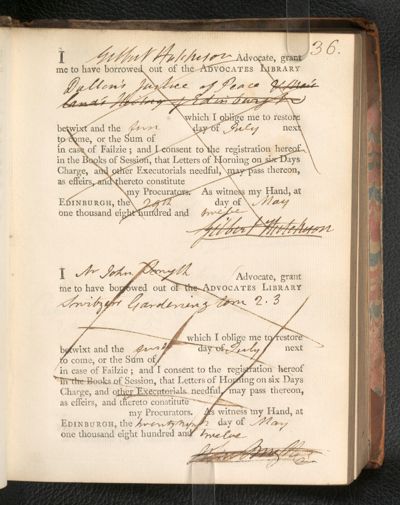 36.
I Gilbert Hutcheson Advocate, grant
me to have borrowed out of the ADVOCATES LIBRARY
Dalton's Justice of Peace
History of Edinburgh
which I oblige me to restore
betwixt and the day of July next
to come, or the Sum of
in case of Failzie; and I consent to the registration hereof
in the Books of Session, that Letters of Horning on six Days
Charge, and other Executorials needful, may pass thereon,
as effeirs, and thereto constitute
my Procurators. As witness my Hand, at
EDINBURGH, the 29th day of May
one thousand eight hundred and twelve
Gilbert Hutcheson
I Mr John Smyth Advocate, grant
me to have borrowed out of the ADVOCATES LIBRARY
Gardening tom 2.3
which I oblige me to restore
betwixt and the day of July next
to come, or the Sum of
in case of Failzie; and I consent to the registration hereof
in the Books of Session, that Letters of Horning on six Days
Charge, and other Executorials needful, may pass thereon,
as effeirs, and thereto constitute
my Procurators. As witness my Hand, at
EDINBURGH, the day of May
one thousand eight hundred and twelve